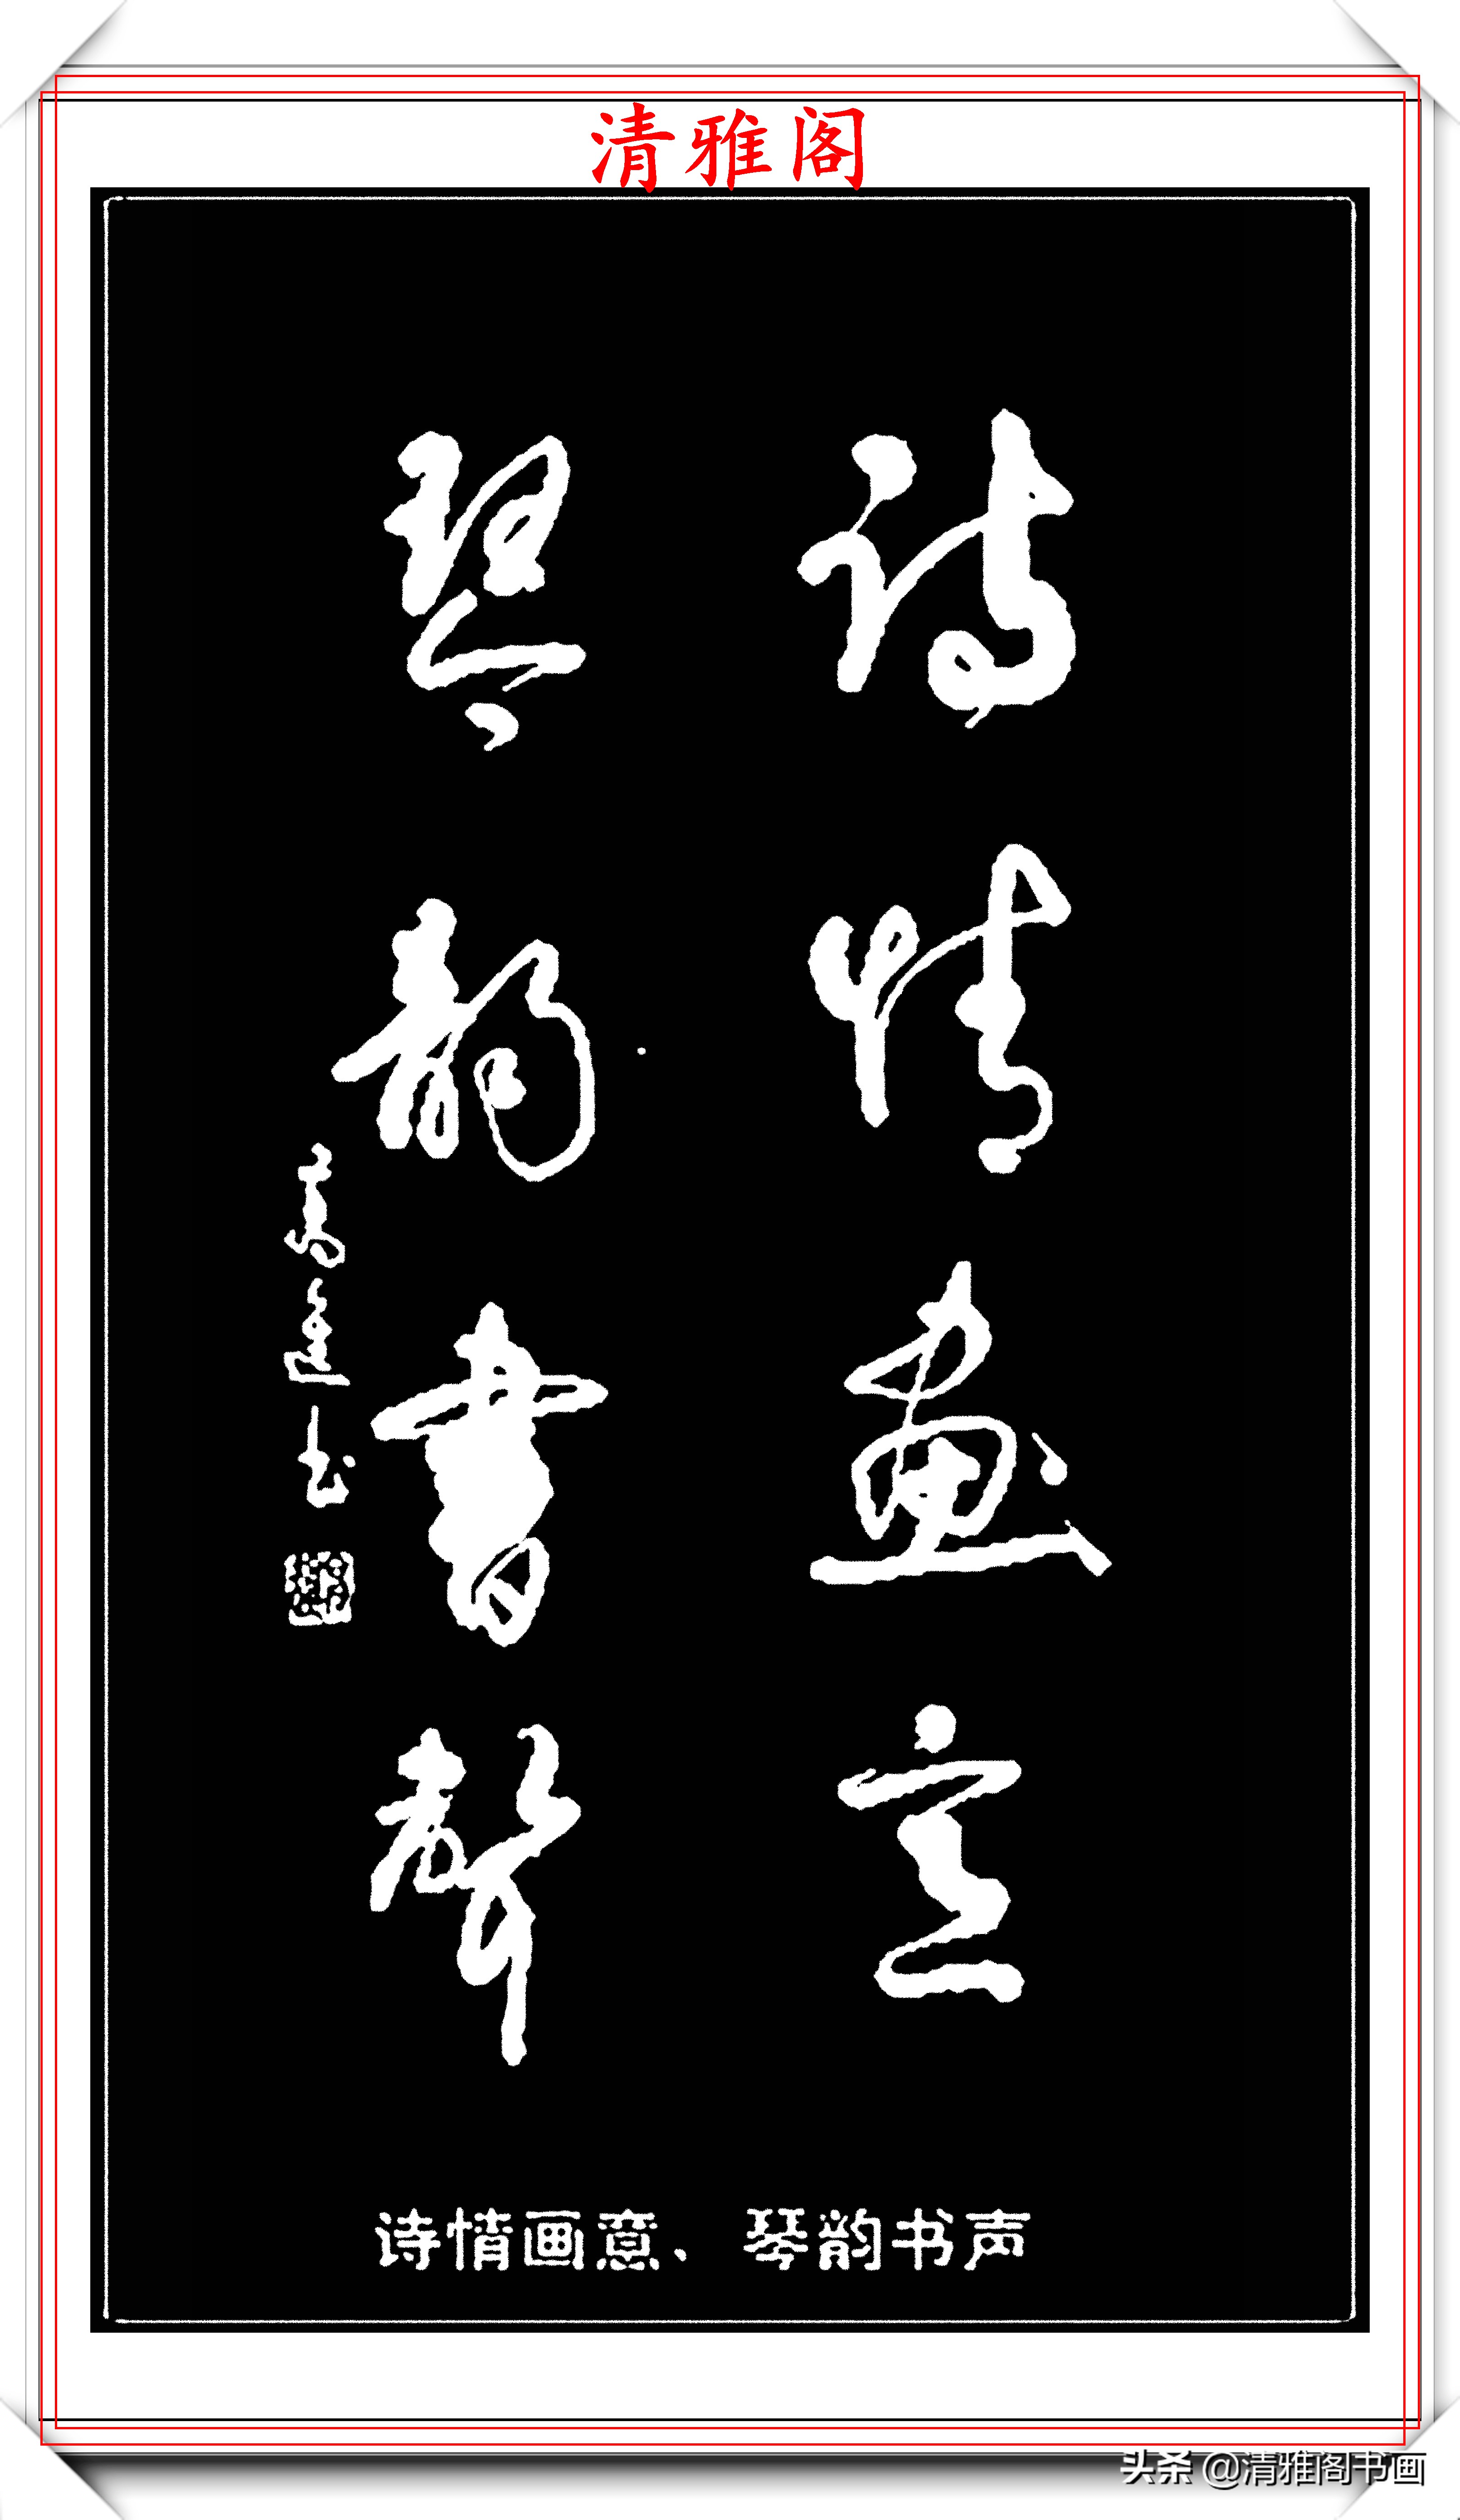 清雅阁
诗情画意
琴韵書聲
诗情画意、琴韵书声
头条 @清雅阁书画